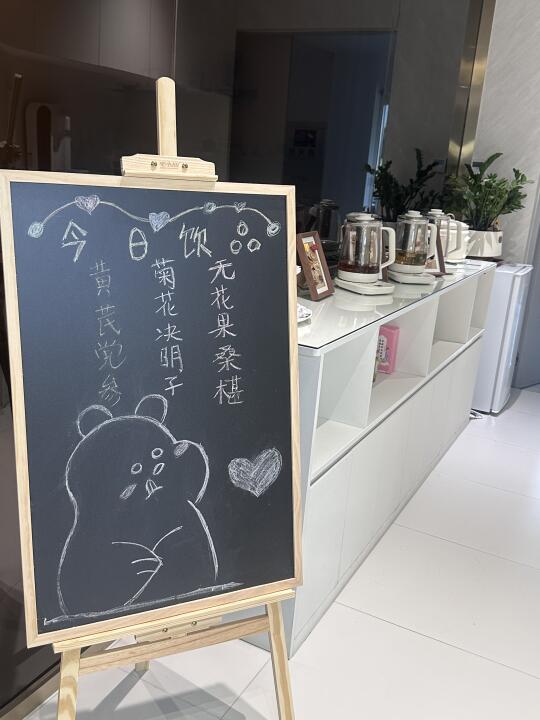 今日饮品
无花果桑椹
菊花决明子
黄芪党参